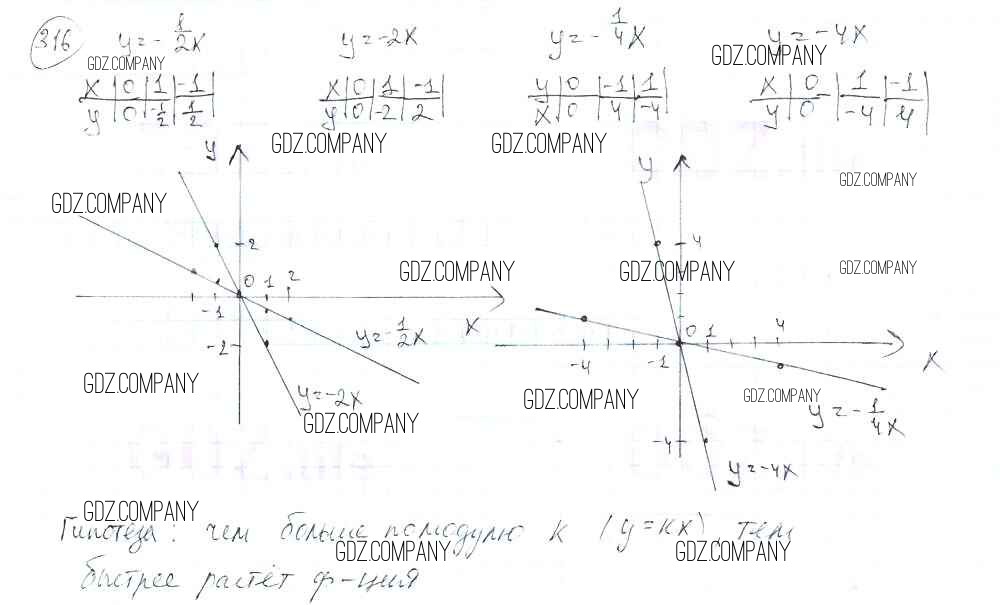 316 y = -1/2x y = -2x y = -1/4x y = -4x
GDZ.COMPANY GDZ.COMPANY
x | 0 | 1 | -1 | x | 0 | 1 | -1 y | 0 | -1 | 1 | x | 0 | 1 | -1 |
y | 0 | -1/2 | 1/2 | y | 0 | -2 | 2 | x | 0 | 4 | -4 | y | 0 | -4 | 4 |
GDZ.COMPANY GDZ.COMPANY
y y
GDZ.COMPANY GDZ.COMPANY
2 4
GDZ.COMPANY GDZ.COMPANY GDZ.COMPANY
0 1 2
-1 x
y = -1/2x
-2
0 1 4
-4 -1 x
GDZ.COMPANY y = -2x GDZ.COMPANY GDZ.COMPANY
GDZ.COMPANY y = -1/4x
-4
y = -4x
GDZ.COMPANY
Гипотеза: чем больше по модулю к (y = кx), тем
GDZ.COMPANY GDZ.COMPANY
быстрее растёт ф-ция